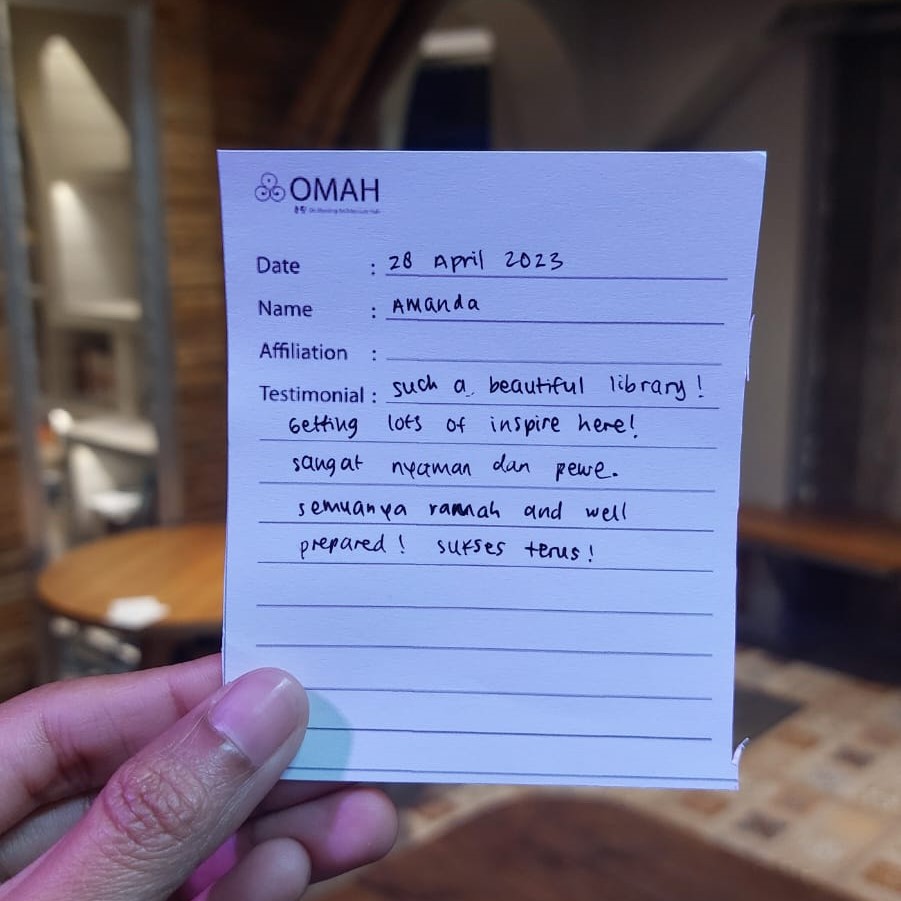 OMAH
Date : 28 April 2023
Name : Amanda
Affiliation :
Testimonial : such a beautiful library!
Getting lots of inspire here!
sangat nyaman dan pewe.
semuanya ramah and well
prepared! sukses terus!